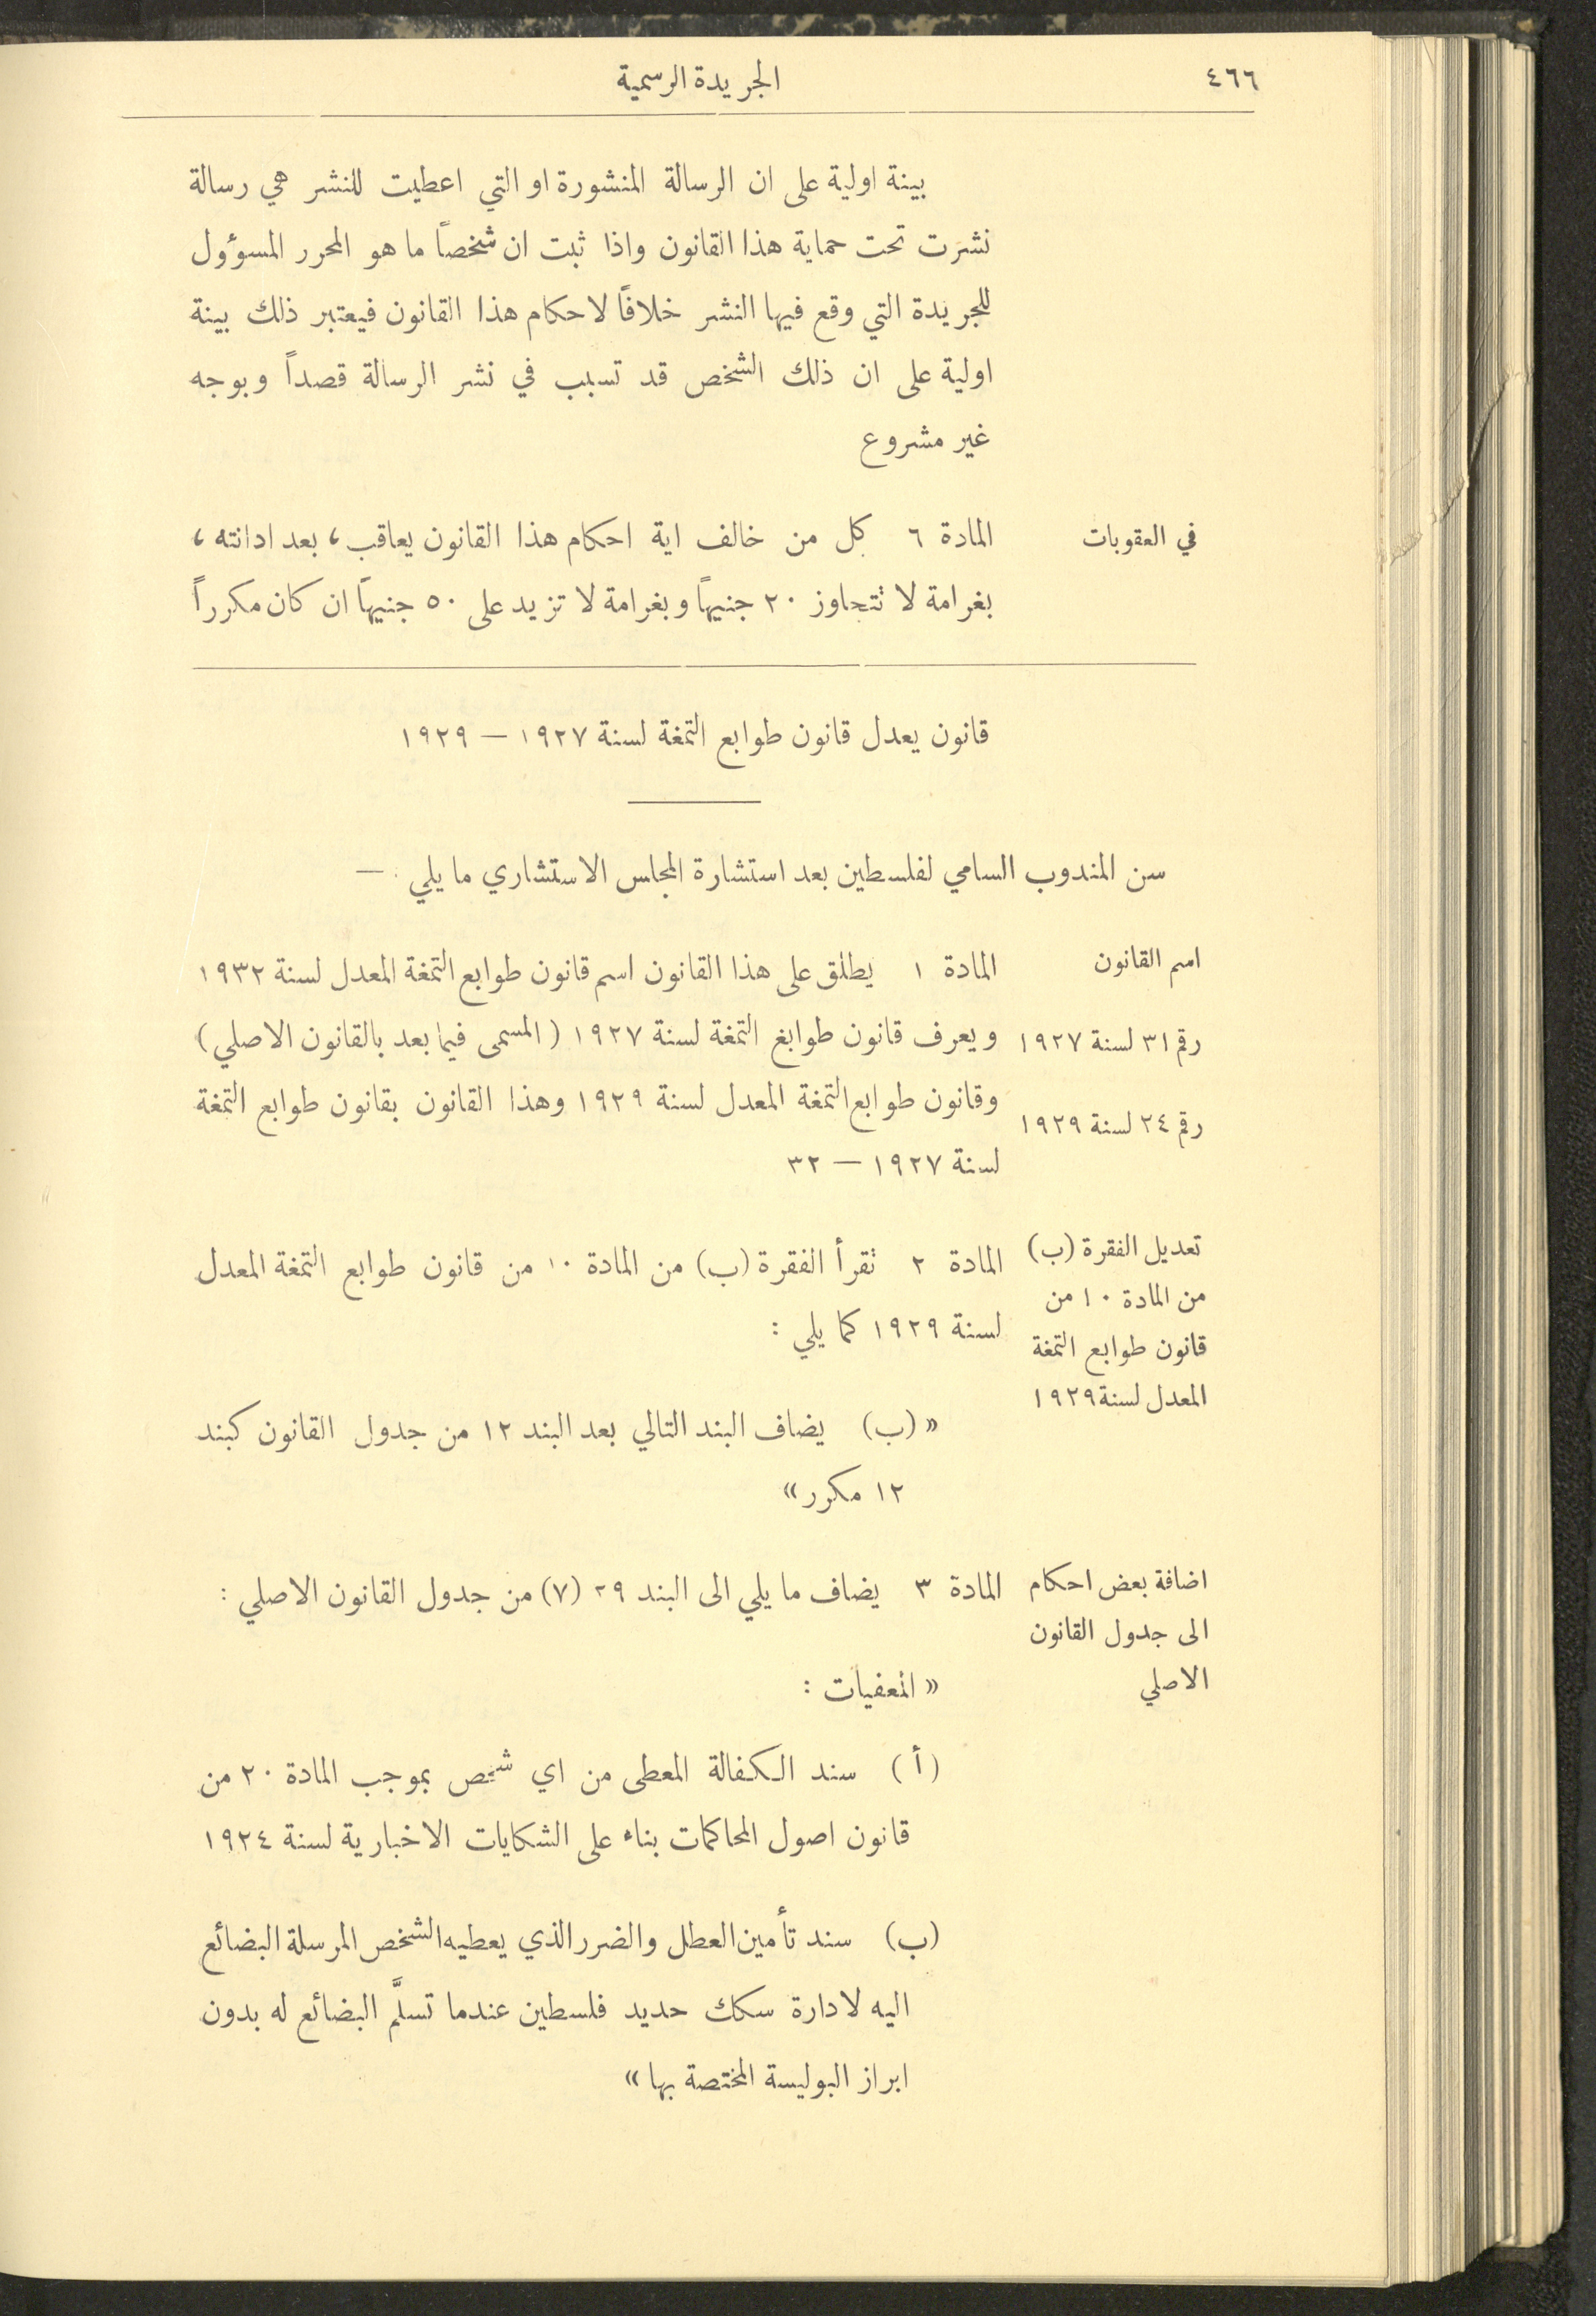 ٤٦٦
الجريدة الرسمية
بينة اولية على ان الرسالة المنشورة او التي اعطيت للنشر هي رسالة
نشرت تحت حماية هذا القانون واذا ثبت ان شخصاً ما هو المحرر المسوؤل
للجريدة التي وقع فيها النشر خلافاً لاحكام هذا القانون فيعتبر ذلك بينة
اولية على ان ذلك الشخص قد تسبب في نشر الرسالة قصداً وبوجه
غير مشروع
في العقوبات
المادة ٦ كل من خالف اية احكام هذا القانون يعاقب، بعد ادانته،
بغرامة لا تتجاوز ٢٠ جنيهاً وبغرامة لا تزيد على ٥٠ جنيهاً ان كان مكرراً
قانون يعدل قانون طوابع التمغة لسنة ١٩٢٧ — ١٩٢٩
سن المندوب السامي لفلسطين بعد استشارة المجلس الاستشاري ما يلي : —
اسم القانون
المادة ١ يطلق على هذا القانون اسم قانون طوابع التمغة المعدل لسنة ١٩٣٢
رقم ٣١ لسنة ١٩٢٧
ويعرف قانون طوابغ التمغة لسنة ١٩٢٧ (المسمى فيما بعد بالقانون الاصلي)
رقم ٢٤ لسنة ١٩٢٩
وقانون طوابع التمغة المعدل لسنة ١٩٢٩ وهذا القانون بقانون طوابع التمغة
لسنة ١٩٢٧ — ٣٢
تعديل الفقرة (ب)
من المادة ١٠ من
قانون طوابع التمغة
المعدل لسنة ١٩٢٩
المادة ٢ تقرأ الفقرة (ب) من المادة ١٠ من قانون طوابع التمغة المعدل
لسنة ١٩٢٩ كما يلي :
« (ب) يضاف البند التالي بعد البند ١٢ من جدول القانون كبند
١٢ مكرر »
اضافة بعض احكام
الى جدول القانون
الاصلي
المادة ٣ يضاف ما يلي الى البند ٢٩ (٧) من جدول القانون الاصلي :
« المعفيات :
(أ) سند الكفالة المعطى من اي شخص بموجب المادة ٢٠ من
قانون اصول المحاكمات بناء على الشكايات الاخبارية لسنة ١٩٢٤
(ب) سند تأمين العطل والضرر الذي يعطيه الشخص المرسلة البضائع
اليه لادارة سكك حديد فلسطين عندما تسلَّم البضائع له بدون
ابراز البوليسة المختصة بها »